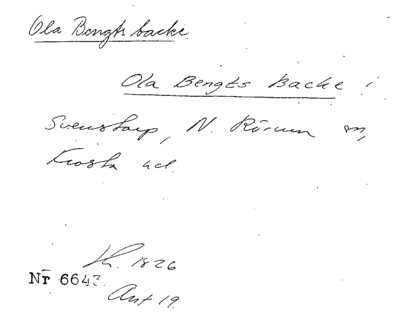 Ola Bengts backe.
Ola Bengts Backe i
Svenstorp, N. Rörum sn,
Frosta hd.
Lh. 1826
Nr 6643.
Ant 19.